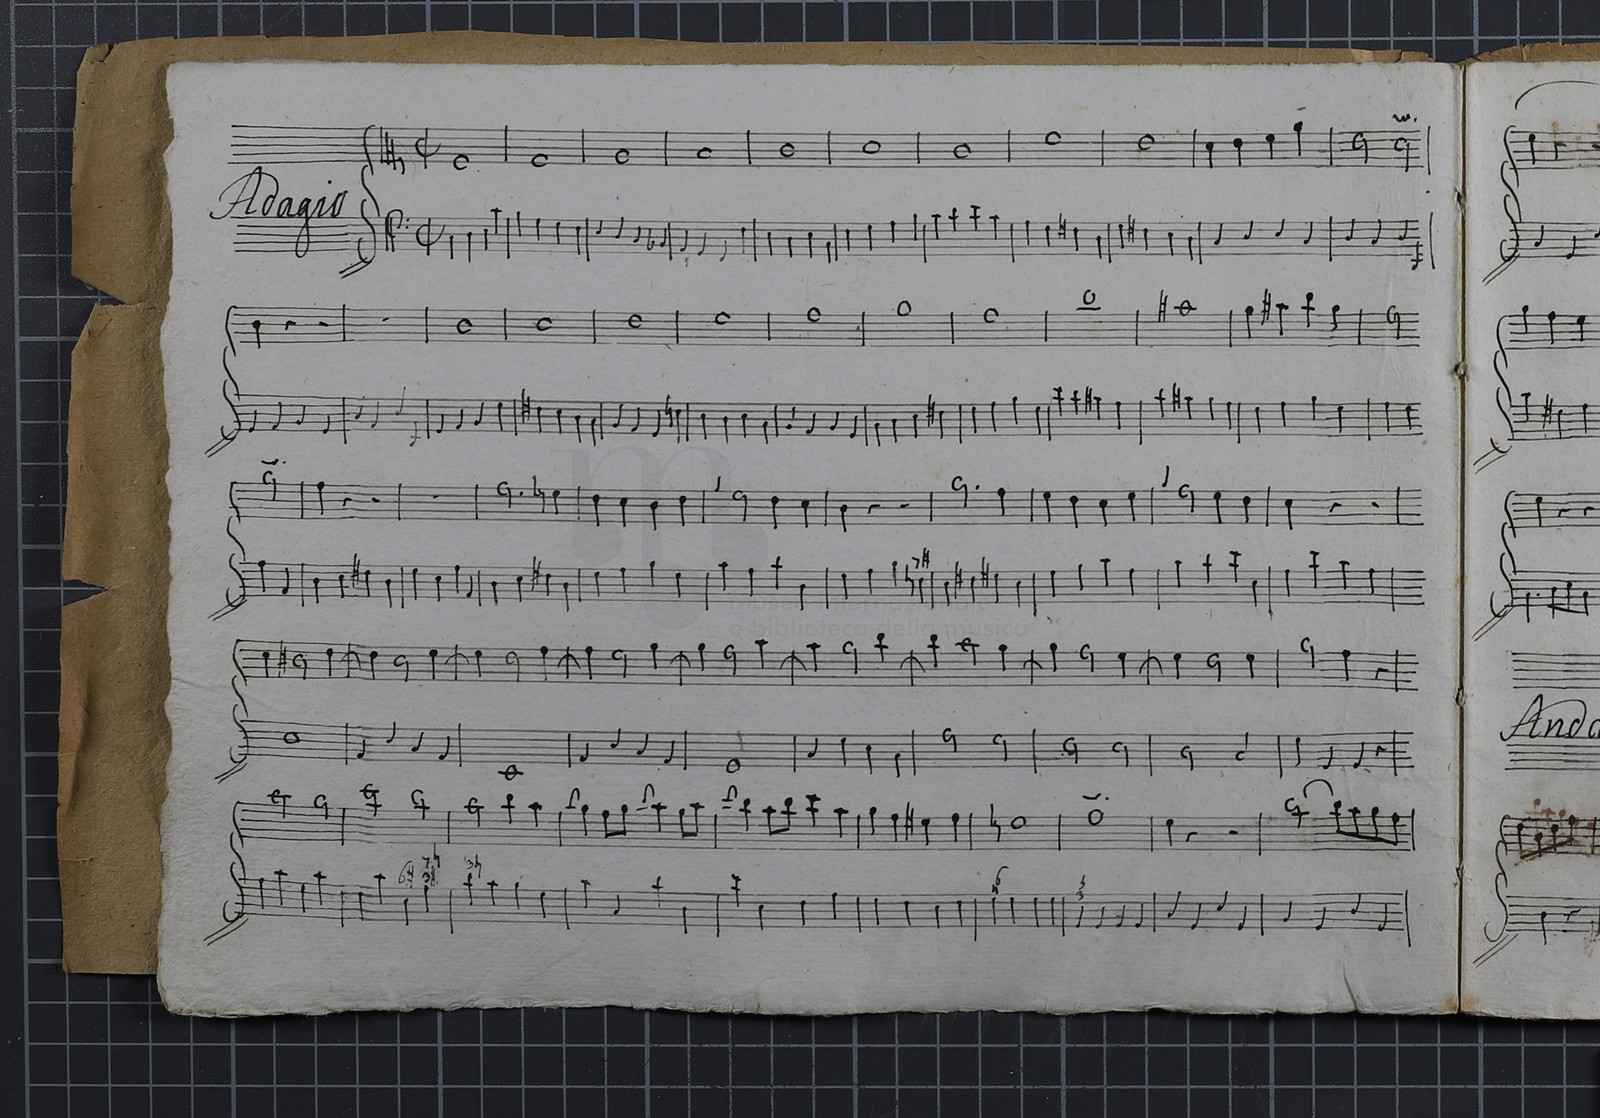 Adagio
museo internazionale
e biblioteca della musica